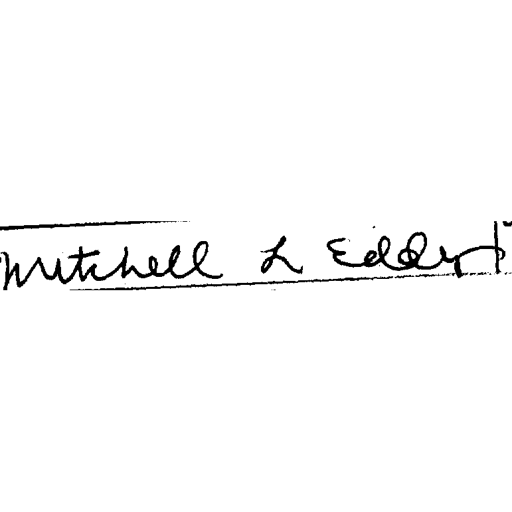 Mitchell L Eddy